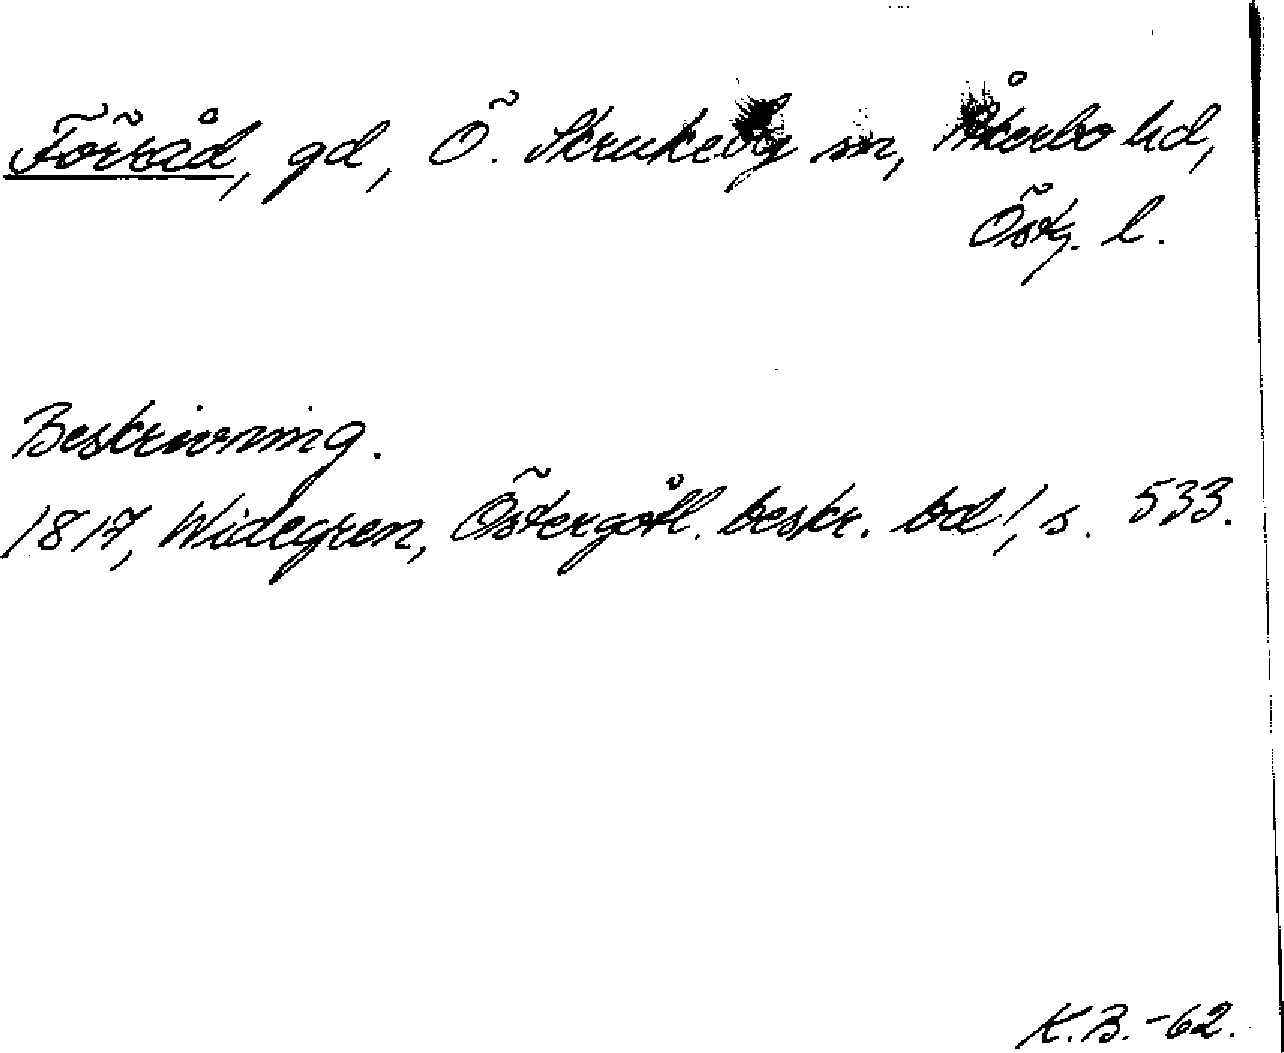 Förråd, gd, Ö. Skrukeby sn, Åkerbo hd,
Östg. l.
Beskrivning.
1817, Widegren, Östergötl. beskr. bd 1, s. 533.
K.B.-62.